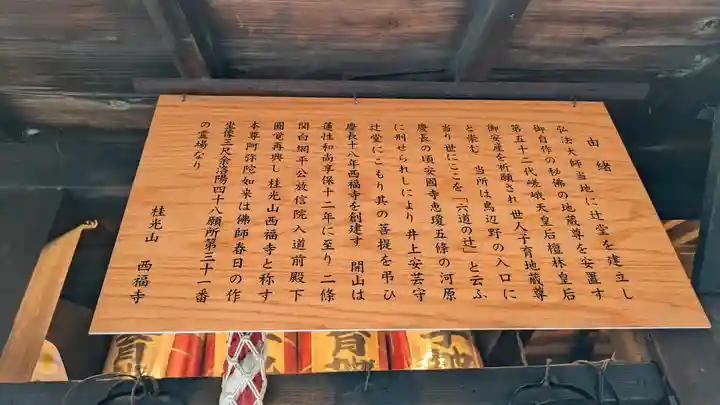 由緒
弘法大師当地に辻堂を建立し
御自作の秘佛の地蔵尊を安置す
第五十二代嵯峨天皇后檀林皇后
御安産を祈願され世人子育地蔵尊
と崇む 当所は鳥辺野の入口に
当り世にここを「六道の辻」と云ふ
慶長の頃安國寺恵瓊五條の河原
に刑せられしにより井上安芸守
辻堂にこもり其の菩提を弔ひ
慶長十八年西福寺を創建す 開山は
蓮性和尚享保十二年に至り二條
関白綱平公放信院入道前殿下
圓覚再興し桂光山西福寺と称す
本尊阿弥陀如来は佛師春日の作
坐像三尺余洛陽四十八願所第三十一番
の霊場なり
桂光山 西福寺
育
育